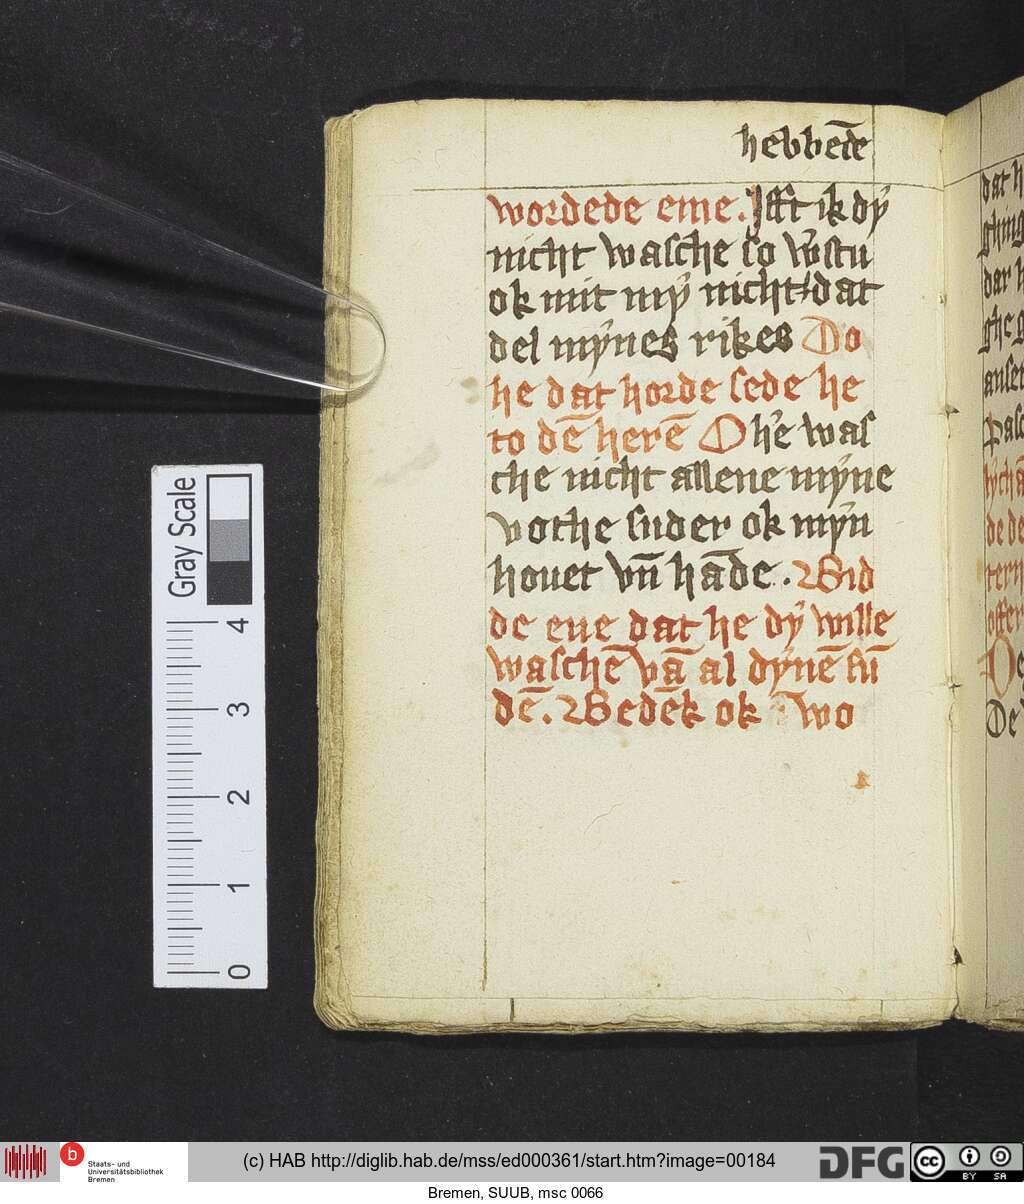 hebbēde
wordede eme. Jfft ik dÿ
nicht wasche so v̈ristu
ok mit mÿ nicht dat
del mÿnes rikes Do
he dat horde sede he
to dē herē O h'e was
che nicht allene mÿne
vothe sůder ok mÿn
houet vn̄ hāde. Bid
de ene dat he dÿ wille
waschē vā al dÿnē sů
dē. Bedēk ok wo
dat h
ghing
dar h
ghe g
anse
Pasc
de de
tern
offer
De
Gray Scale
0 1 2 3 4
b
Staats- und
Universitätsbibliothek
Bremen
(c) HAB http://diglib.hab.de/mss/ed000361/start.htm?image=00184
DFG
cc BY SA
Bremen, SUUB, msc 0066